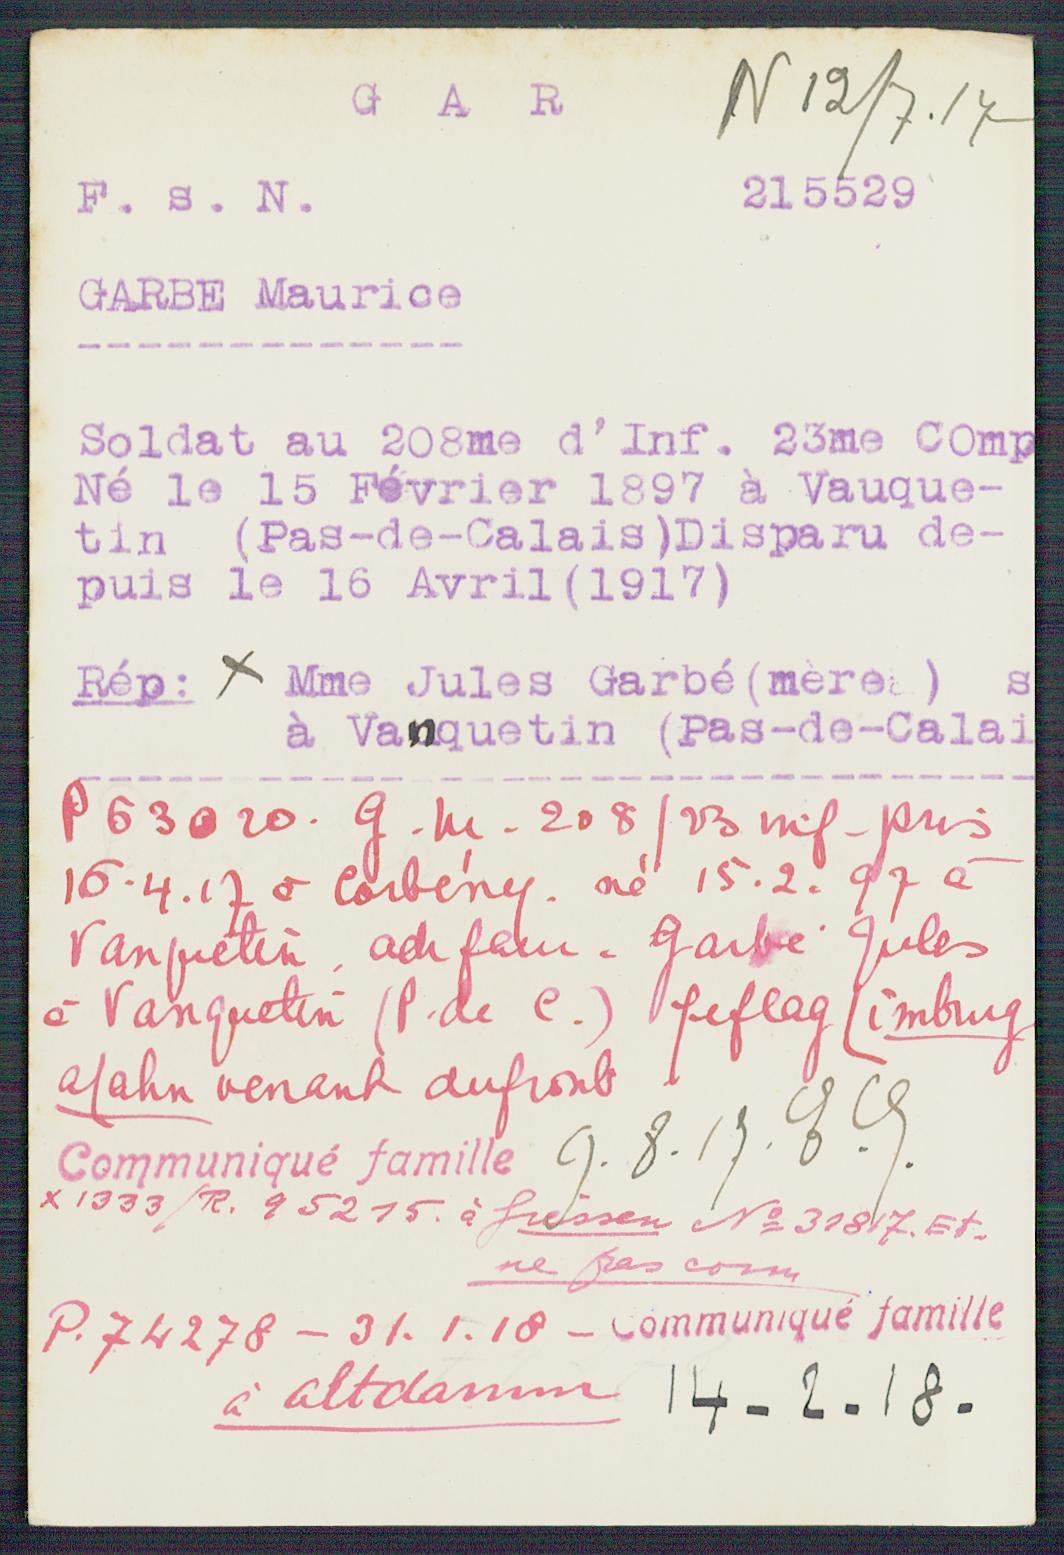 G A R N 12/7.17
F. s. N. 215529
GARBE Maurice
Soldat au 208me d'Inf. 23me COmp
Né le 15 Février 1897 à Vauque-
tin (Pas-de-Calais)Disparu de-
puis le 16 Avril(1917)
Rép: X Mme Jules Garbé(mère ) s
à Vanquetin (Pas-de-Calai
P 63020. G. M. 208/23 inf - pris
16.4.17 à Corbény. né 15.2.97 à
Vanquetin. adr fam. Garbé Jules
à Vanquetin (P. de C.) Limburg
a/Lahn venant du front
Communiqué famille 9.8.17.
x 1333/R. 95215. à Giessen No 31817. Et.
ne pas comm
P. 74278 - 31.1.18 - Communiqué famille
à altdamm 14-2-18-